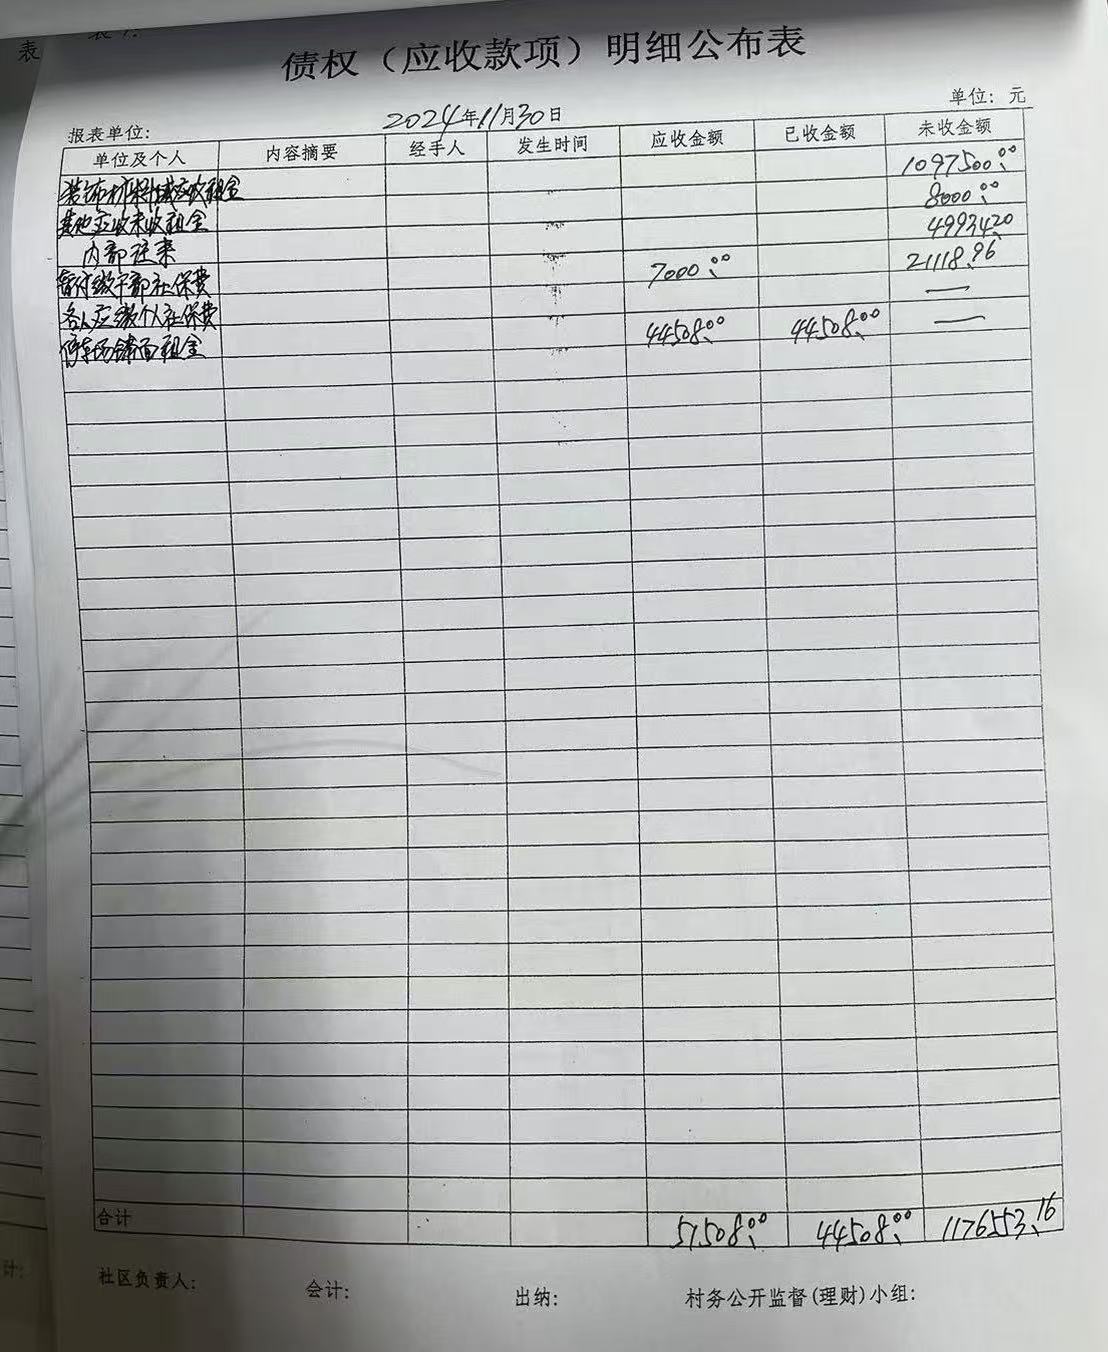 表
债权（应收款项）明细公布表
2024年11月30日
报表单位:
单位: 元
单位及个人 内容摘要 经手人 发生时间 应收金额 已收金额 未收金额
装饰材料城应收租金 1097500.00
其他应收未收租金 8000.00
内部往来 49934.20
暂付缴干部社保费 7000.00 21118.96
各人应缴个人社保费 —
停车场铺面租金 44508.00 44508.00 —
合计 51508.00 44508.00 1176553.16
计:
社区负责人: 会计: 出纳: 村务公开监督(理财)小组: